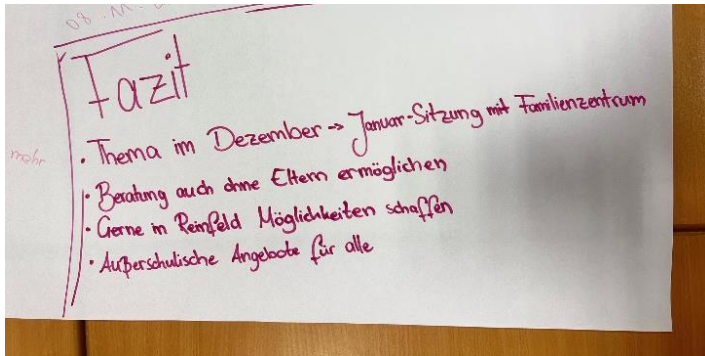 08. M
Fazit
mehr
· Thema im Dezember → Januar-Sitzung mit Familienzentrum
· Beratung auch ohne Eltern ermöglichen
· Gerne in Reinfeld Möglichkeiten schaffen
· Außerschulische Angebote für alle